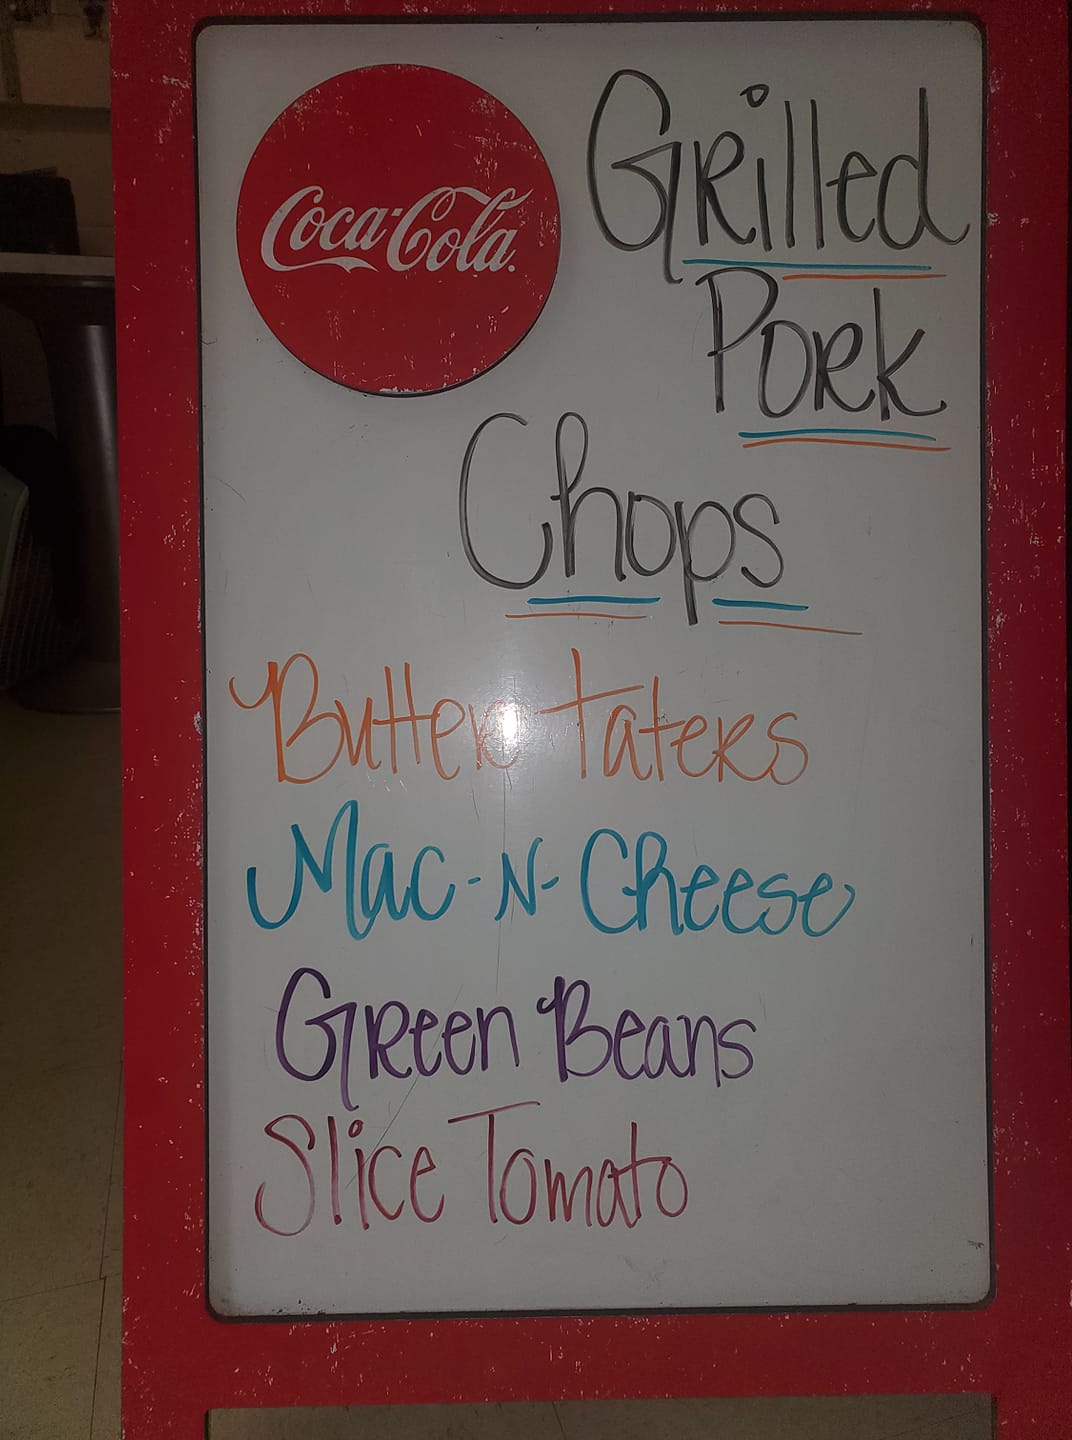 Coca-Cola
Grilled
Pork
Chops
Butter Taters
Mac-N-Cheese
Green Beans
Slice Tomato